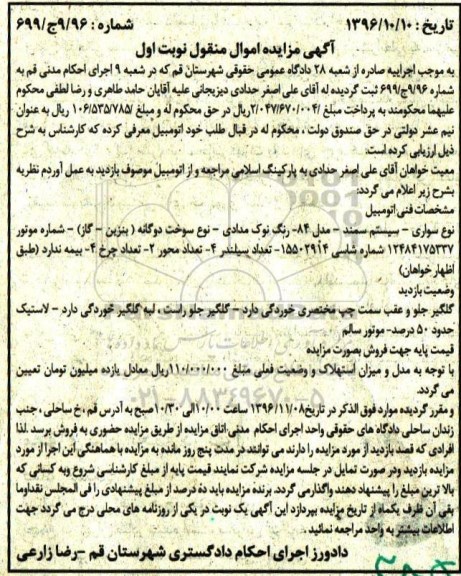 تاریخ : ۱۳۹۶/۱۰/۱۰ شماره : ۹/۹۶ج/۶۹۹
آگهی مزایده اموال منقول نوبت اول
به موجب اجراییه صادره از شعبه ۲۸ دادگاه عمومی حقوقی شهرستان قم که در شعبه ۹ اجرای احکام مدنی قم به
شماره ۹/۹۶ج/۶۹۹ ثبت گردیده له آقای علی اصغر حدادی دیزیجانی علیه آقایان حامد طاهری و رضا لطفی محکوم
علیهما محکومند به پرداخت مبلغ /۲/۰۴۷/۶۷۰/۰۰۴ریال در حق محکوم له و مبلغ /۱۰۶/۵۳۵/۷۸۵ ریال به عنوان
نیم عشر دولتی در حق صندوق دولت ، محکوم له در قبال طلب خود اتومبیل معرفی کرده که کارشناس به شرح
ذیل ارزیابی کرده است:
معیت خواهان آقای علی اصغر حدادی به پارکینگ اسلامی مراجعه و از اتومبیل موصوف بازدید به عمل آوردم نظریه
بشرح زیر اعلام می گردد:
مشخصات فنی اتومبیل
نوع سواری – سیستم سمند – مدل ۸۴- رنگ نوک مدادی - نوع سوخت دوگانه ( بنزین – گاز) – شماره موتور
۱۲۴۸۴۱۷۵۳۳۷ شماره شاسی ۱۵۵۰۲۹۱۴- تعداد سیلندر ۴- تعداد محور ۲- تعداد چرخ ۴- بیمه ندارد (طبق
اظهار خواهان)
وضعیت بازدید
گلگیر جلو و عقب سمت چپ مختصری خوردگی دارد – گلگیر جلو راست ، لبه گلگیر خوردگی دارد – لاستیک
حدود ۵۰ درصد- موتور سالم
قیمت پایه جهت فروش بصورت مزایده
با توجه به مدل و میزان استهلاک و وضعیت فعلی مبلغ ۱۱۰/۰۰۰/۰۰۰ریال معادل یازده میلیون تومان تعیین
می گردد.
و مقرر گردیده موارد فوق الذکر در تاریخ۱۳۹۶/۱۱/۰۸ ساعت ۱۰/۰۰الی ۱۰/۳۰صبح به آدرس قم ،خ ساحلی ، جنب
زندان ساحلی دادگاه های حقوقی واحد اجرای احکام مدنی،اتاق مزایده از طریق مزایده حضوری به فروش برسد .لذا
افرادی که قصد بازدید از مورد مزایده را دارند می توانند در مدت پنج روز مانده به مزایده با هماهنگی این اجرا از مورد
مزایده بازدید ودر صورت تمایل در جلسه مزایده شرکت نمایند قیمت پایه از مبلغ کارشناسی شروع وبه کسانی که
بالا ترین مبلغ را پیشنهاد دهند واگذارمی گردد. برنده مزایده باید ده درصد از مبلغ پیشنهادی را فی المجلس نقداوما
بقی آن ظرف یکماه از تاریخ مزایده بپردازد این آگهی یک نوبت در یکی از روزنامه های محلی درج می گردد جهت
اطلاعات بیشتر به واحد مراجعه نمائید .
دادورز اجرای احکام دادگستری شهرستان قم –رضا زارعی
۰۲۱-۸۸۳۴۹۶۷۰-۵